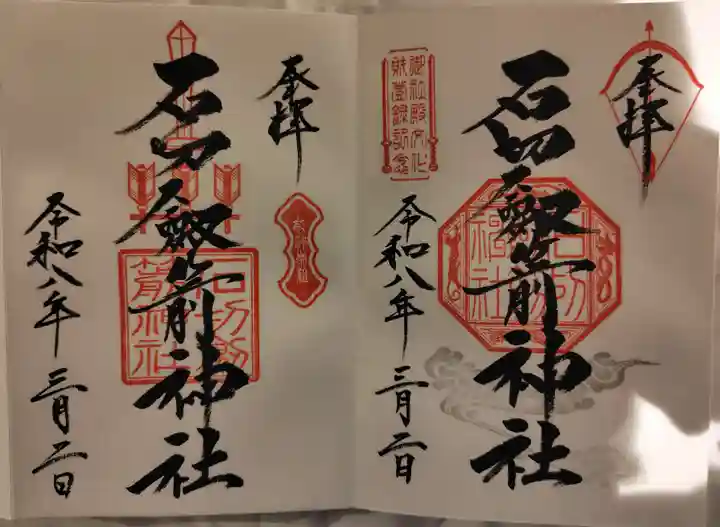 奉拝
石切劔箭神社
令和八年 三月二日
御社殿文化
財登録記念
奉拝
石切劔箭神社
石切劔
箭神社
令和八年 三月二日